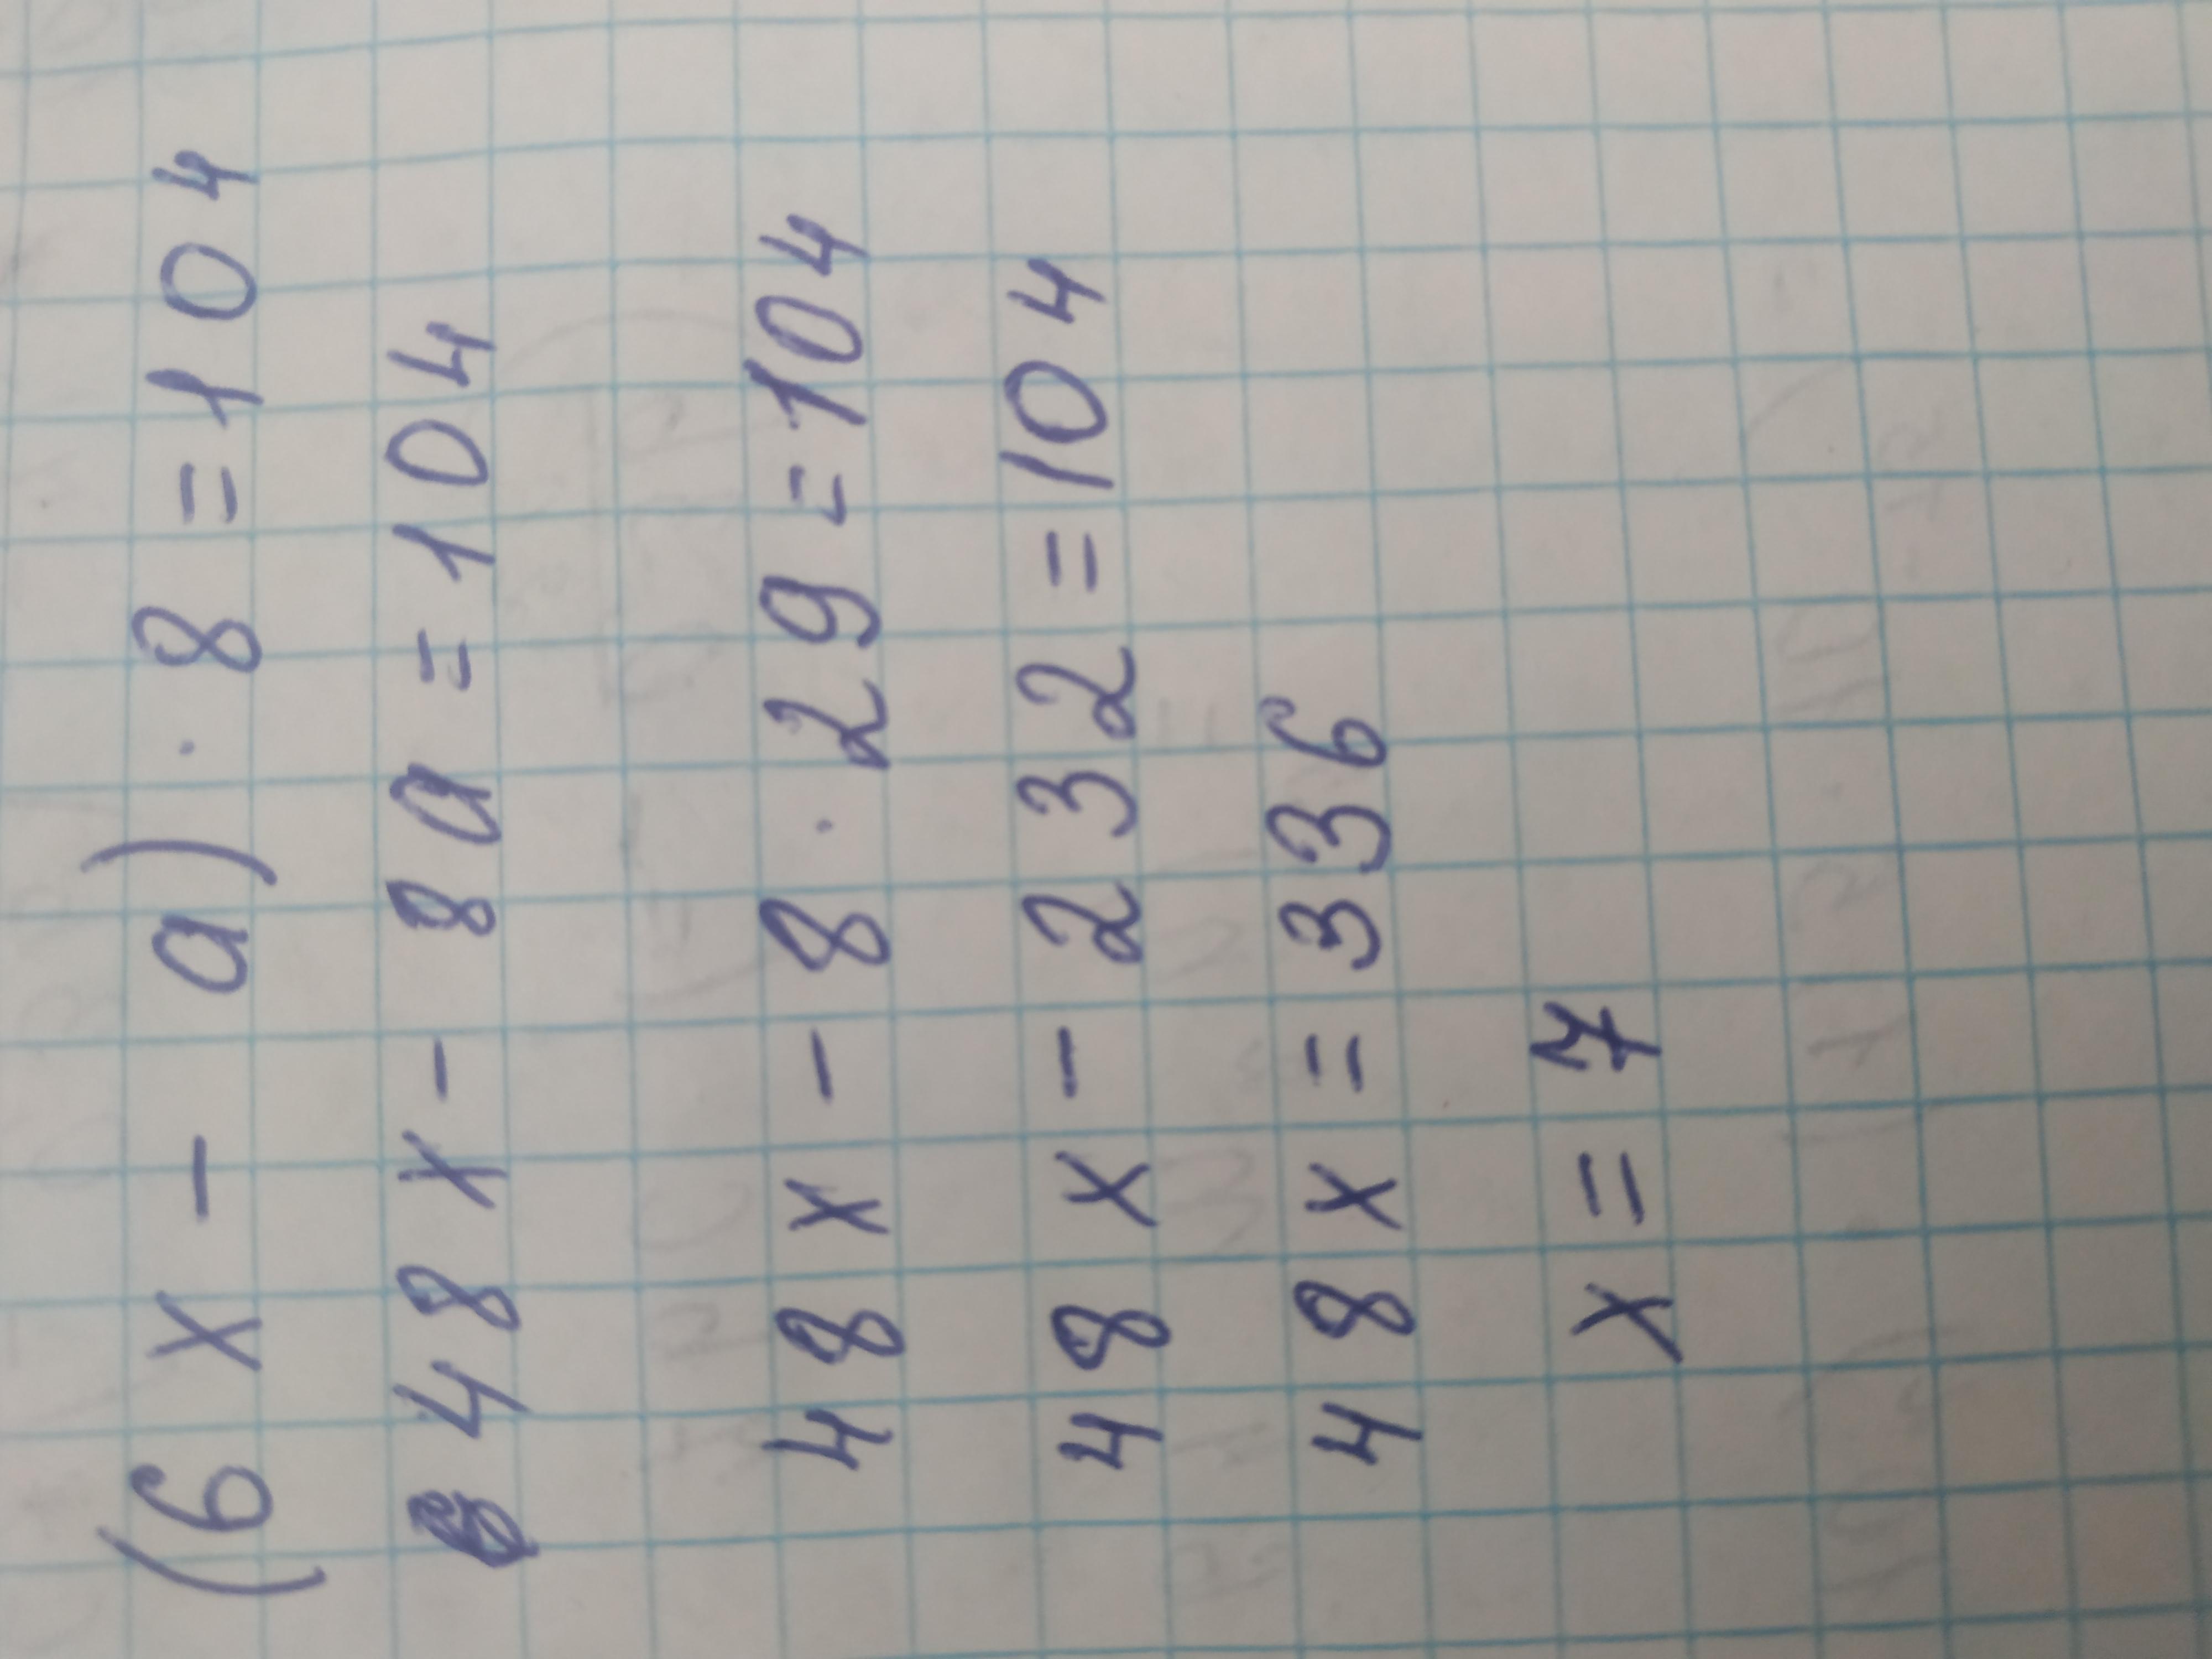 (6x - a) · 8 = 104
48x - 8a = 104
48x - 8 · 29 = 104
48x - 232 = 104
48x = 336
x = 7